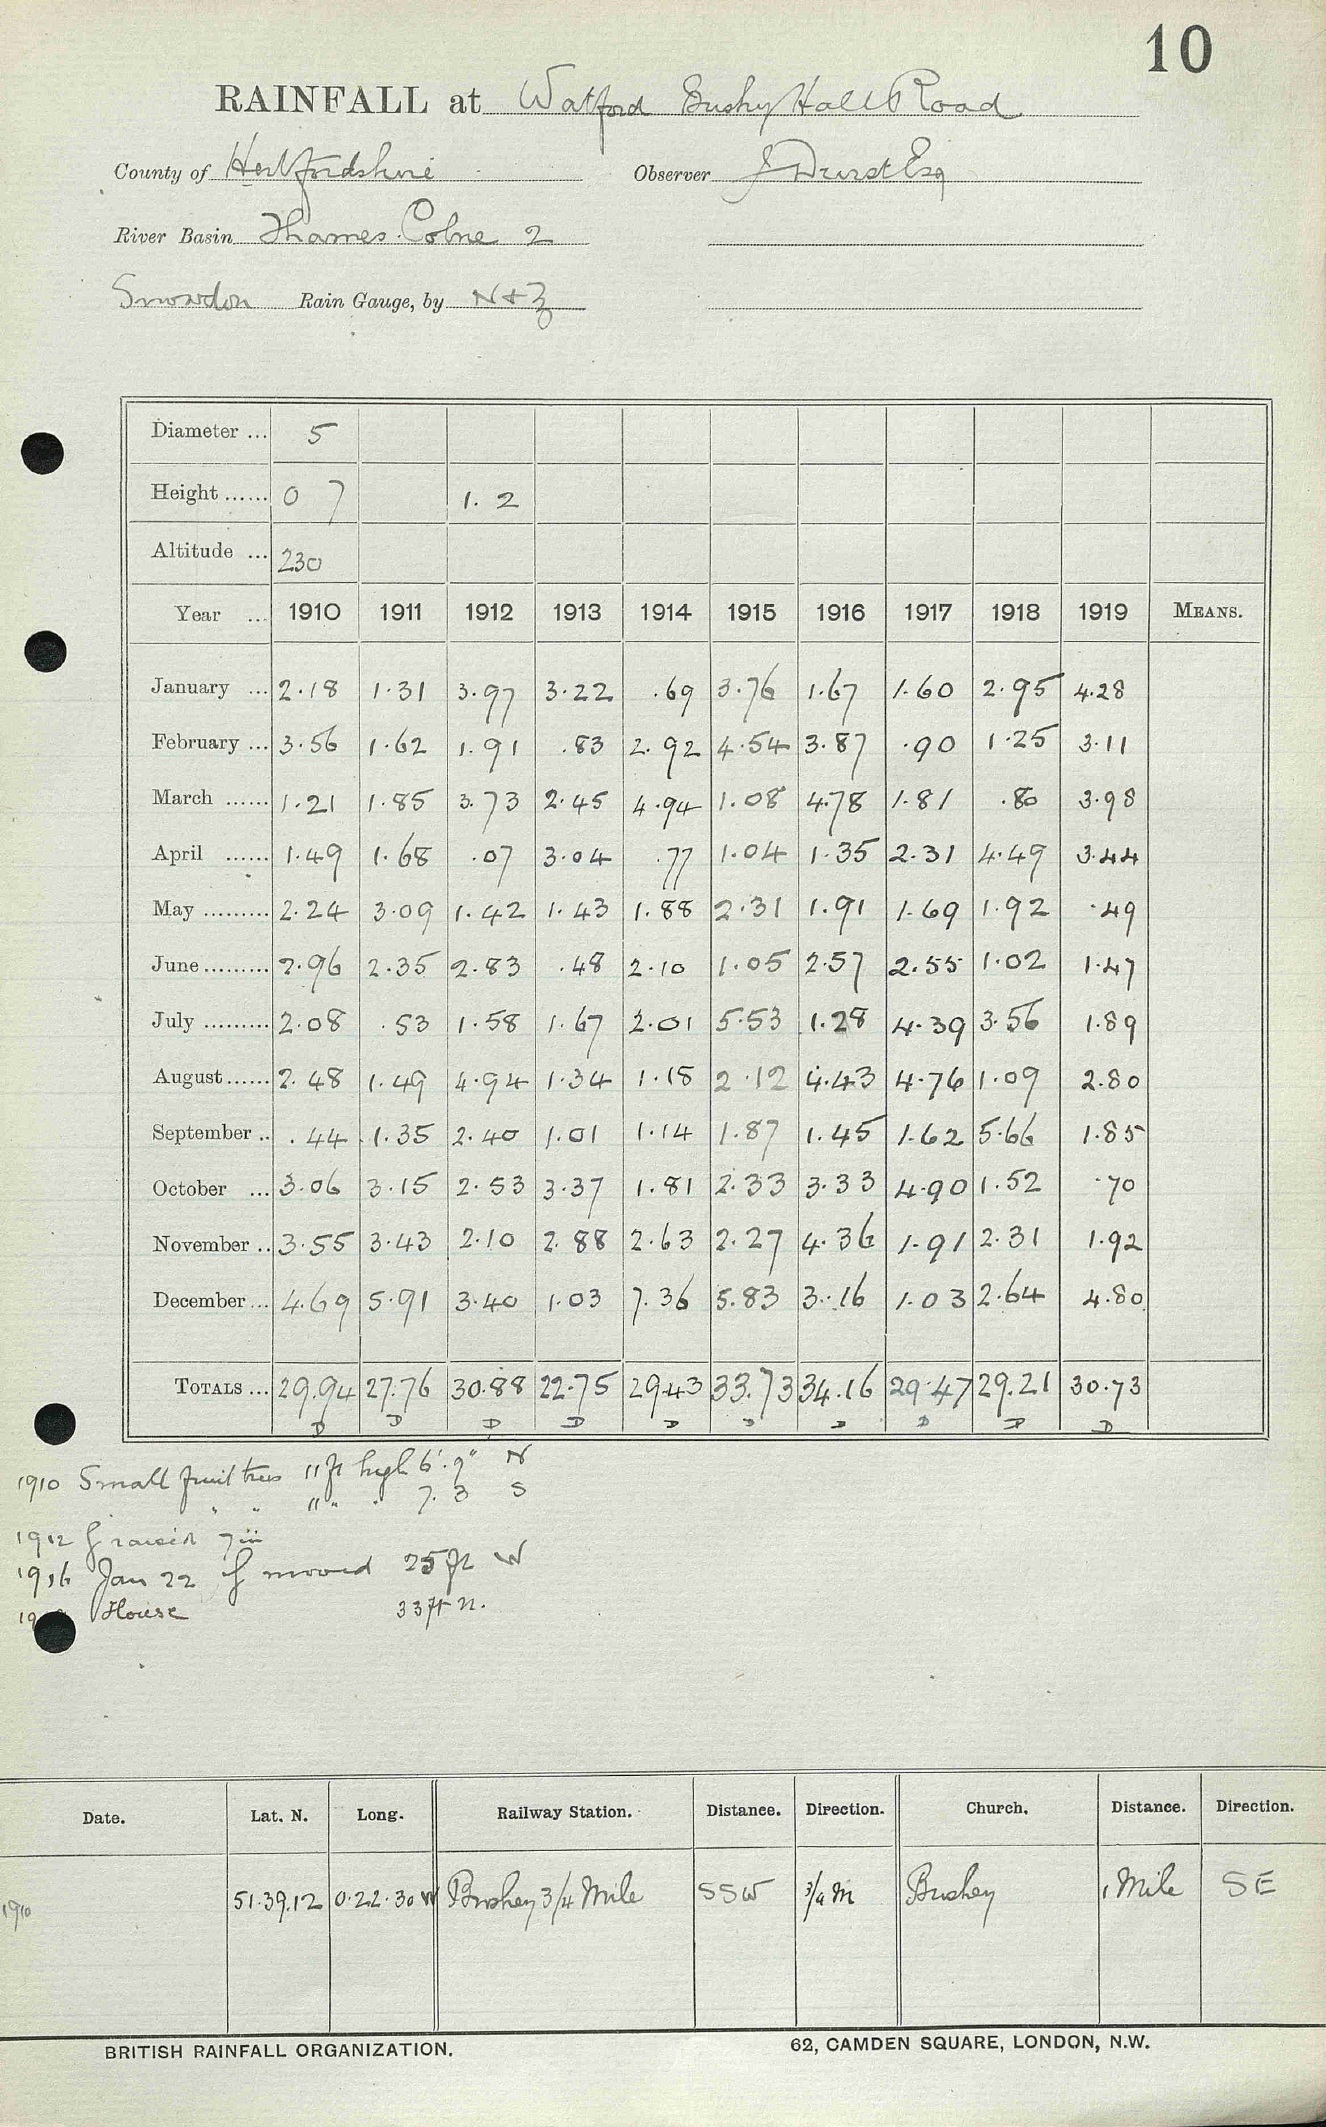 10
RAINFALL at Watford Bushy Hall Road
County of Hertfordshire Observer J Durst Esq
River Basin Thames. Colne 2
Snowdon Rain Gauge, by N + Z
Diameter ... 5
Height ...... 0 7 1. 2
Altitude ... 230
Year ... 1910 1911 1912 1913 1914 1915 1916 1917 1918 1919 MEANS.
January ... 2.18 1.31 3.97 3.22 .69 3.76 1.67 1.60 2.95 4.28
February ... 3.56 1.62 1.91 .83 2.92 4.54 3.87 .90 1.25 3.11
March ...... 1.21 1.85 3.73 2.45 4.94 1.08 4.78 1.81 .80 3.98
April ...... 1.49 1.68 .07 3.04 .77 1.04 1.35 2.31 4.49 3.44
May ......... 2.24 3.09 1.42 1.43 1.88 2.31 1.91 1.69 1.92 .49
June ......... 2.96 2.35 2.83 .48 2.10 1.05 2.57 2.55 1.02 1.47
July ......... 2.08 .53 1.58 1.67 2.01 5.53 1.28 4.39 3.56 1.89
August ...... 2.48 1.49 4.94 1.34 1.18 2.12 4.43 4.76 1.09 2.80
September .. .44 1.35 2.40 1.01 1.14 1.87 1.45 1.62 5.66 1.85
October ... 3.06 3.15 2.53 3.37 1.81 2.33 3.33 4.90 1.52 .70
November .. 3.55 3.43 2.10 2.88 2.63 2.27 4.36 1.91 2.31 1.92
December ... 4.69 5.91 3.40 1.03 7.36 5.83 3.16 1.03 2.64 4.80
TOTALS ... 29.94 27.76 30.88 22.75 29.43 33.73 34.16 29.47 29.21 30.73
D D D D D D D D D D
1910 Small fruit trees 11 ft high 6'. 9" N
" " 11 " " 7. 3 S
1912 G raised 7 in
1916 Jan 22 G moved 25 ft W
House 33 ft N.
Date. Lat. N. Long. Railway Station. Distance. Direction. Church. Distance. Direction.
1910 51.39.12 0.22.30 W Bushey 3/4 Mile SSW 3/4 M Bushey 1 Mile SE
BRITISH RAINFALL ORGANIZATION. 62, CAMDEN SQUARE, LONDON, N.W.